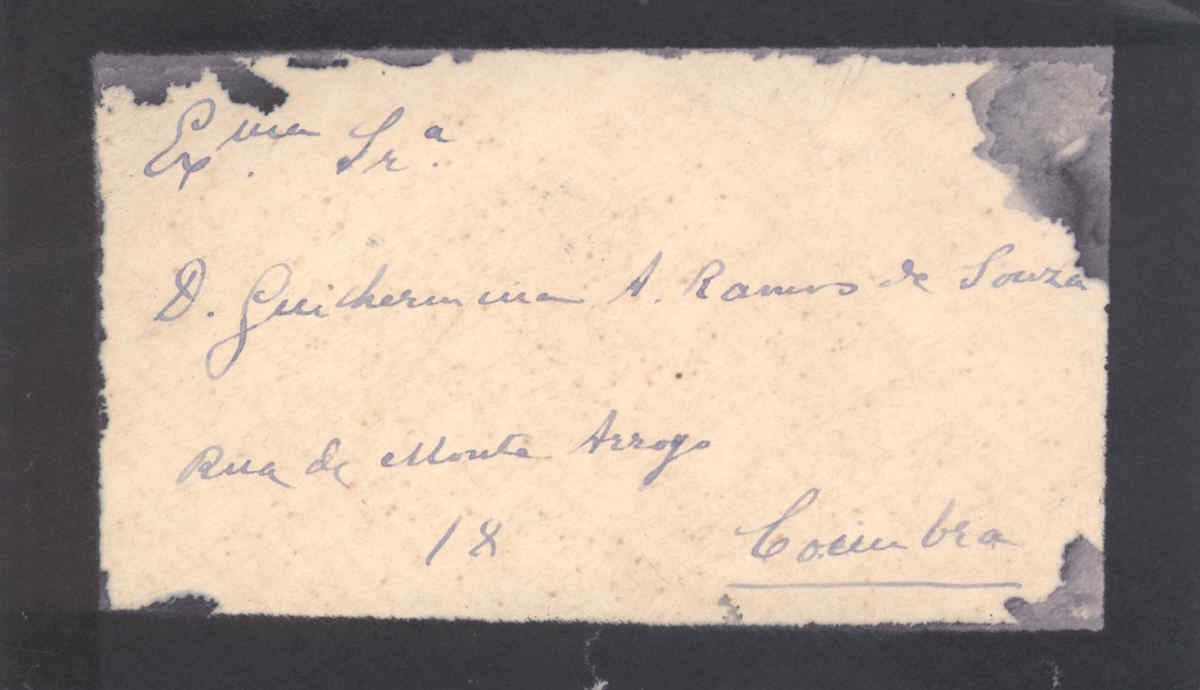 Ex.ma Sr.a
D. Guilhermina A. Ramos de Souza
Rua de Monte Arroyo
18
Coimbra